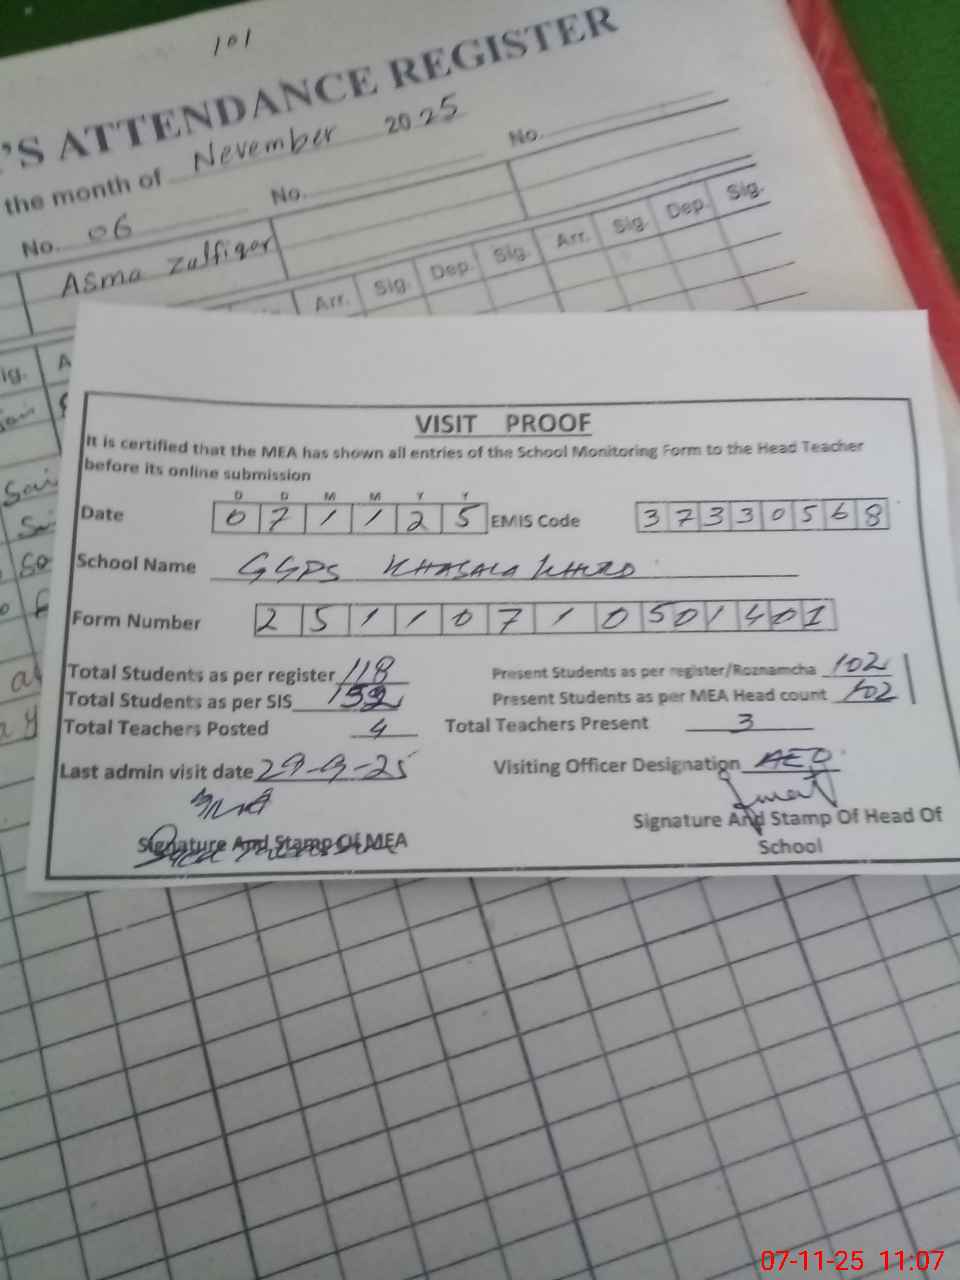 101
'S ATTENDANCE REGISTER
the month of November 2025
No. 06 No. No.
Asma Zulfiqar
Arr. Sig. Dep. Sig. Arr. Sig. Dep. Sig.
ig. A
VISIT PROOF
It is certified that the MEA has shown all entries of the School Monitoring Form to the Head Teacher
before its online submission
D D M M Y Y
Date 0 7 1 1 2 5 EMIS Code 3 7 3 3 0 5 6 8
School Name GGPS KHASALA KHURD
Form Number 2 5 1 1 0 7 1 0 5 0 1 4 0 1
Total Students as per register 118 Present Students as per register/Roznamcha 102
Total Students as per SIS Present Students as per MEA Head count 102
Total Teachers Posted 4 Total Teachers Present 3
Last admin visit date 29-9-25 Visiting Officer Designation AEO
Signature And Stamp Of MEA
Signature And Stamp Of Head Of
School
07-11-25 11:07